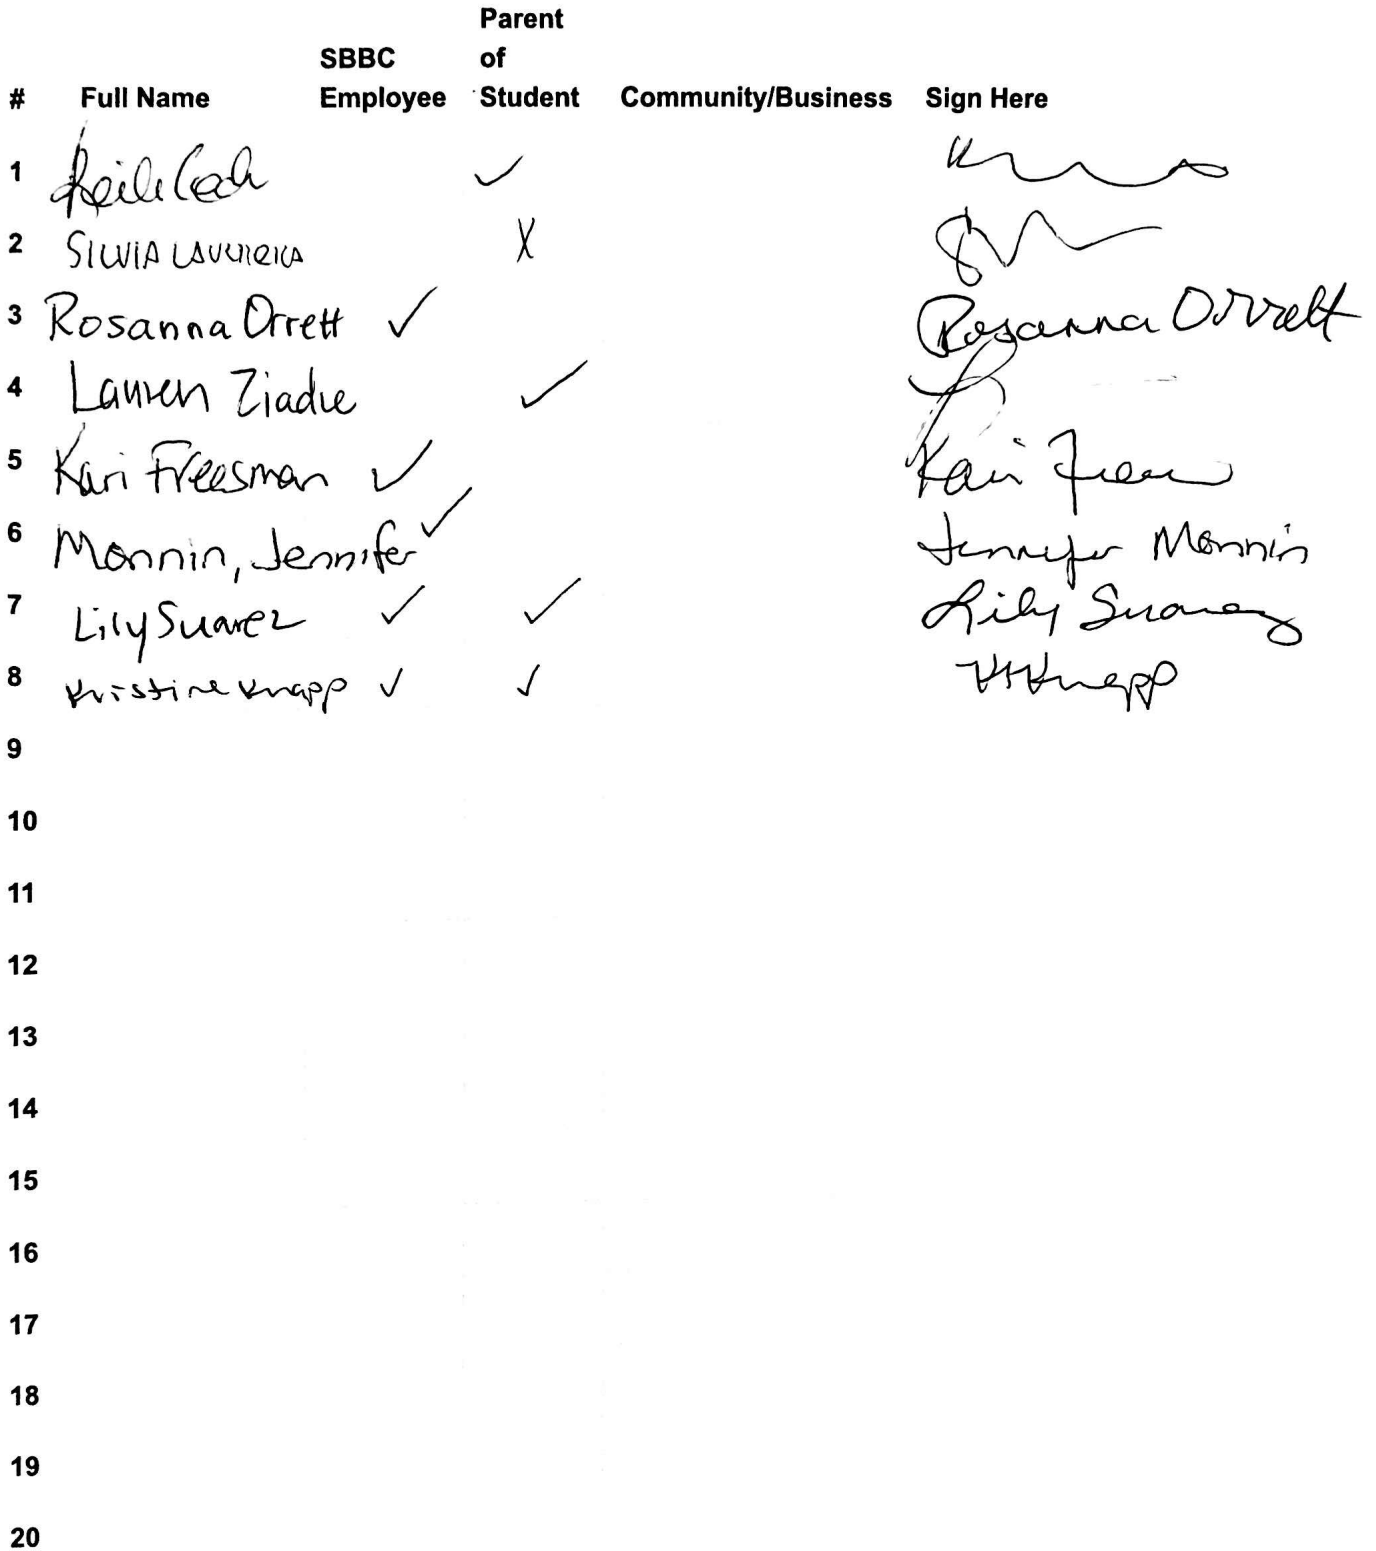 Parent
SBBC of
# Full Name Employee Student Community/Business Sign Here
1 ✓
2 SILVIA X
3 Rosanna Orrett ✓ Rosanna Orrett
4 Lauren Ziadie ✓
5 Kari Freesman ✓ Kari
6 Monnin, Jennifer ✓ Jennifer Monnin
7 Lily Suarez ✓ ✓ Lily Suarez
8 Kristine Knapp ✓ ✓ KKnapp
9
10
11
12
13
14
15
16
17
18
19
20